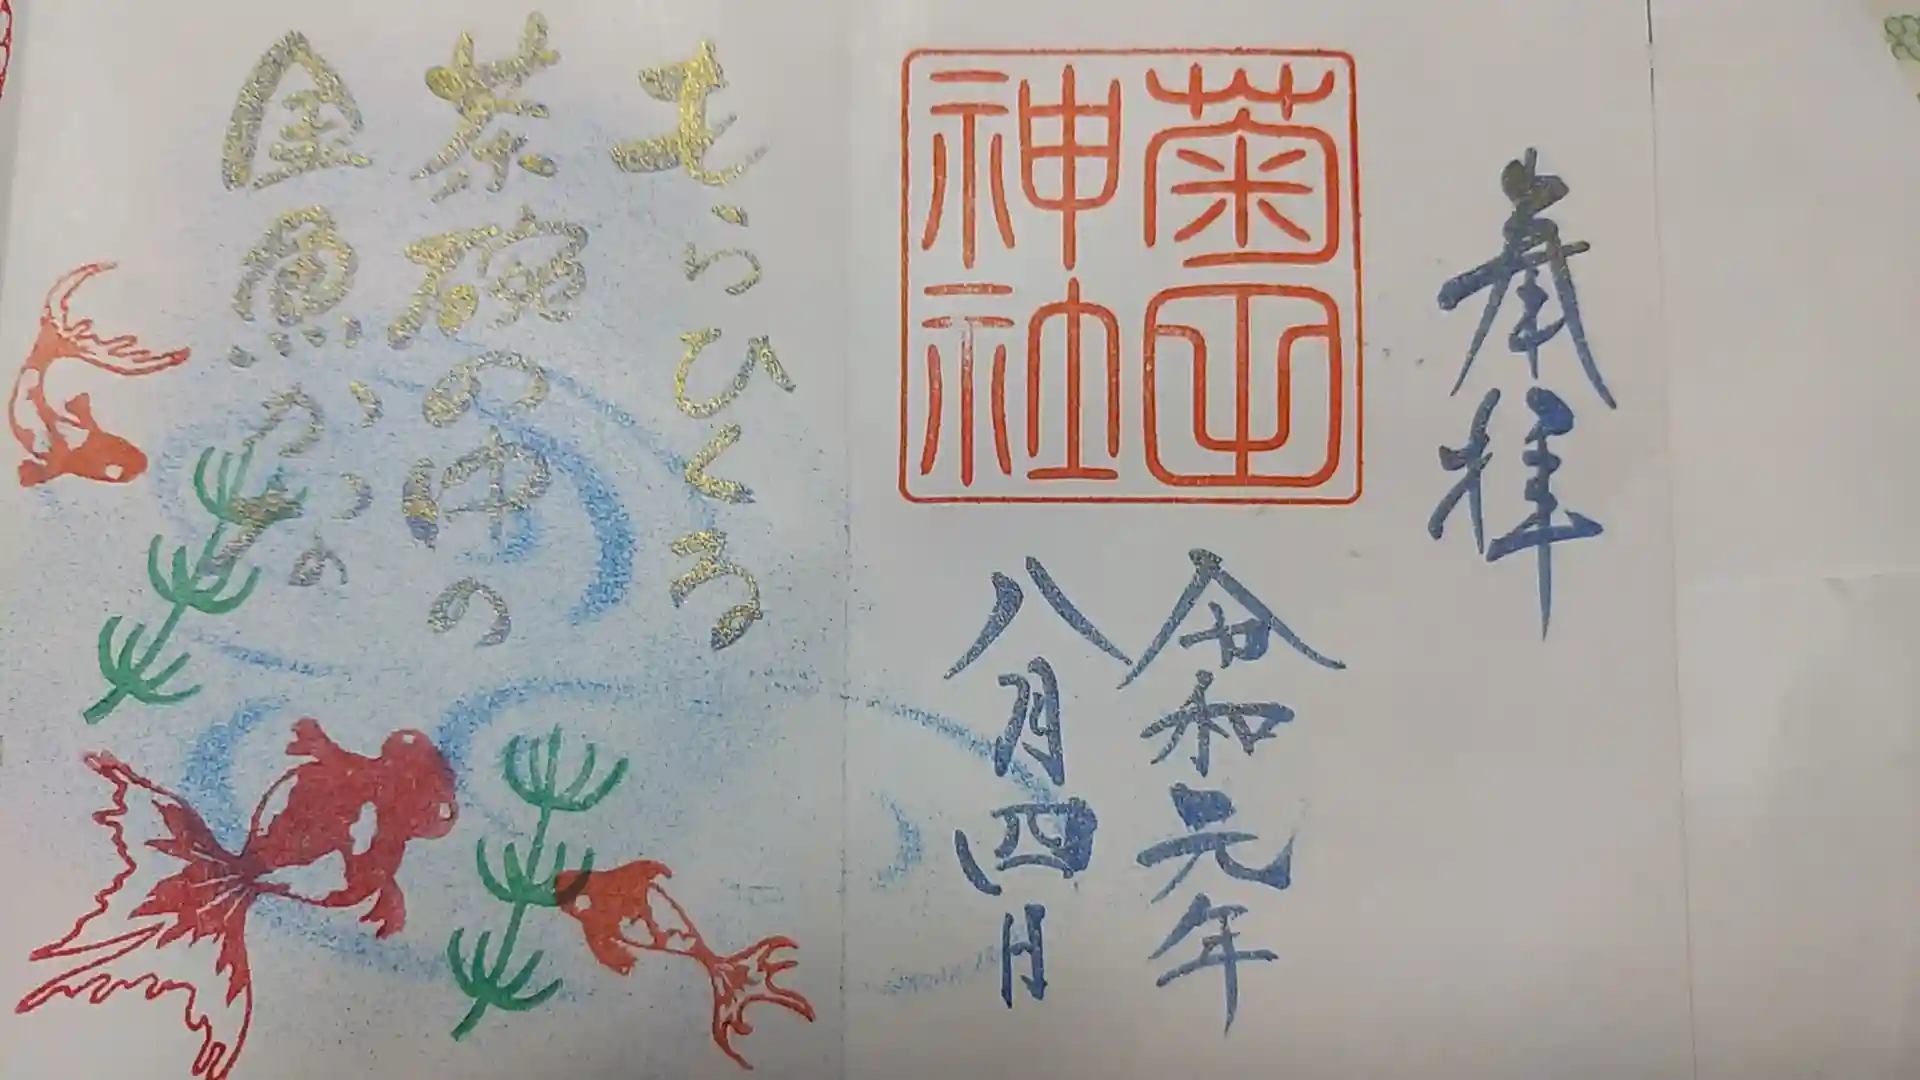 奉拝
菊田
神社
令和元年
八月四日
もらひくる
茶碗の中の
金魚かな